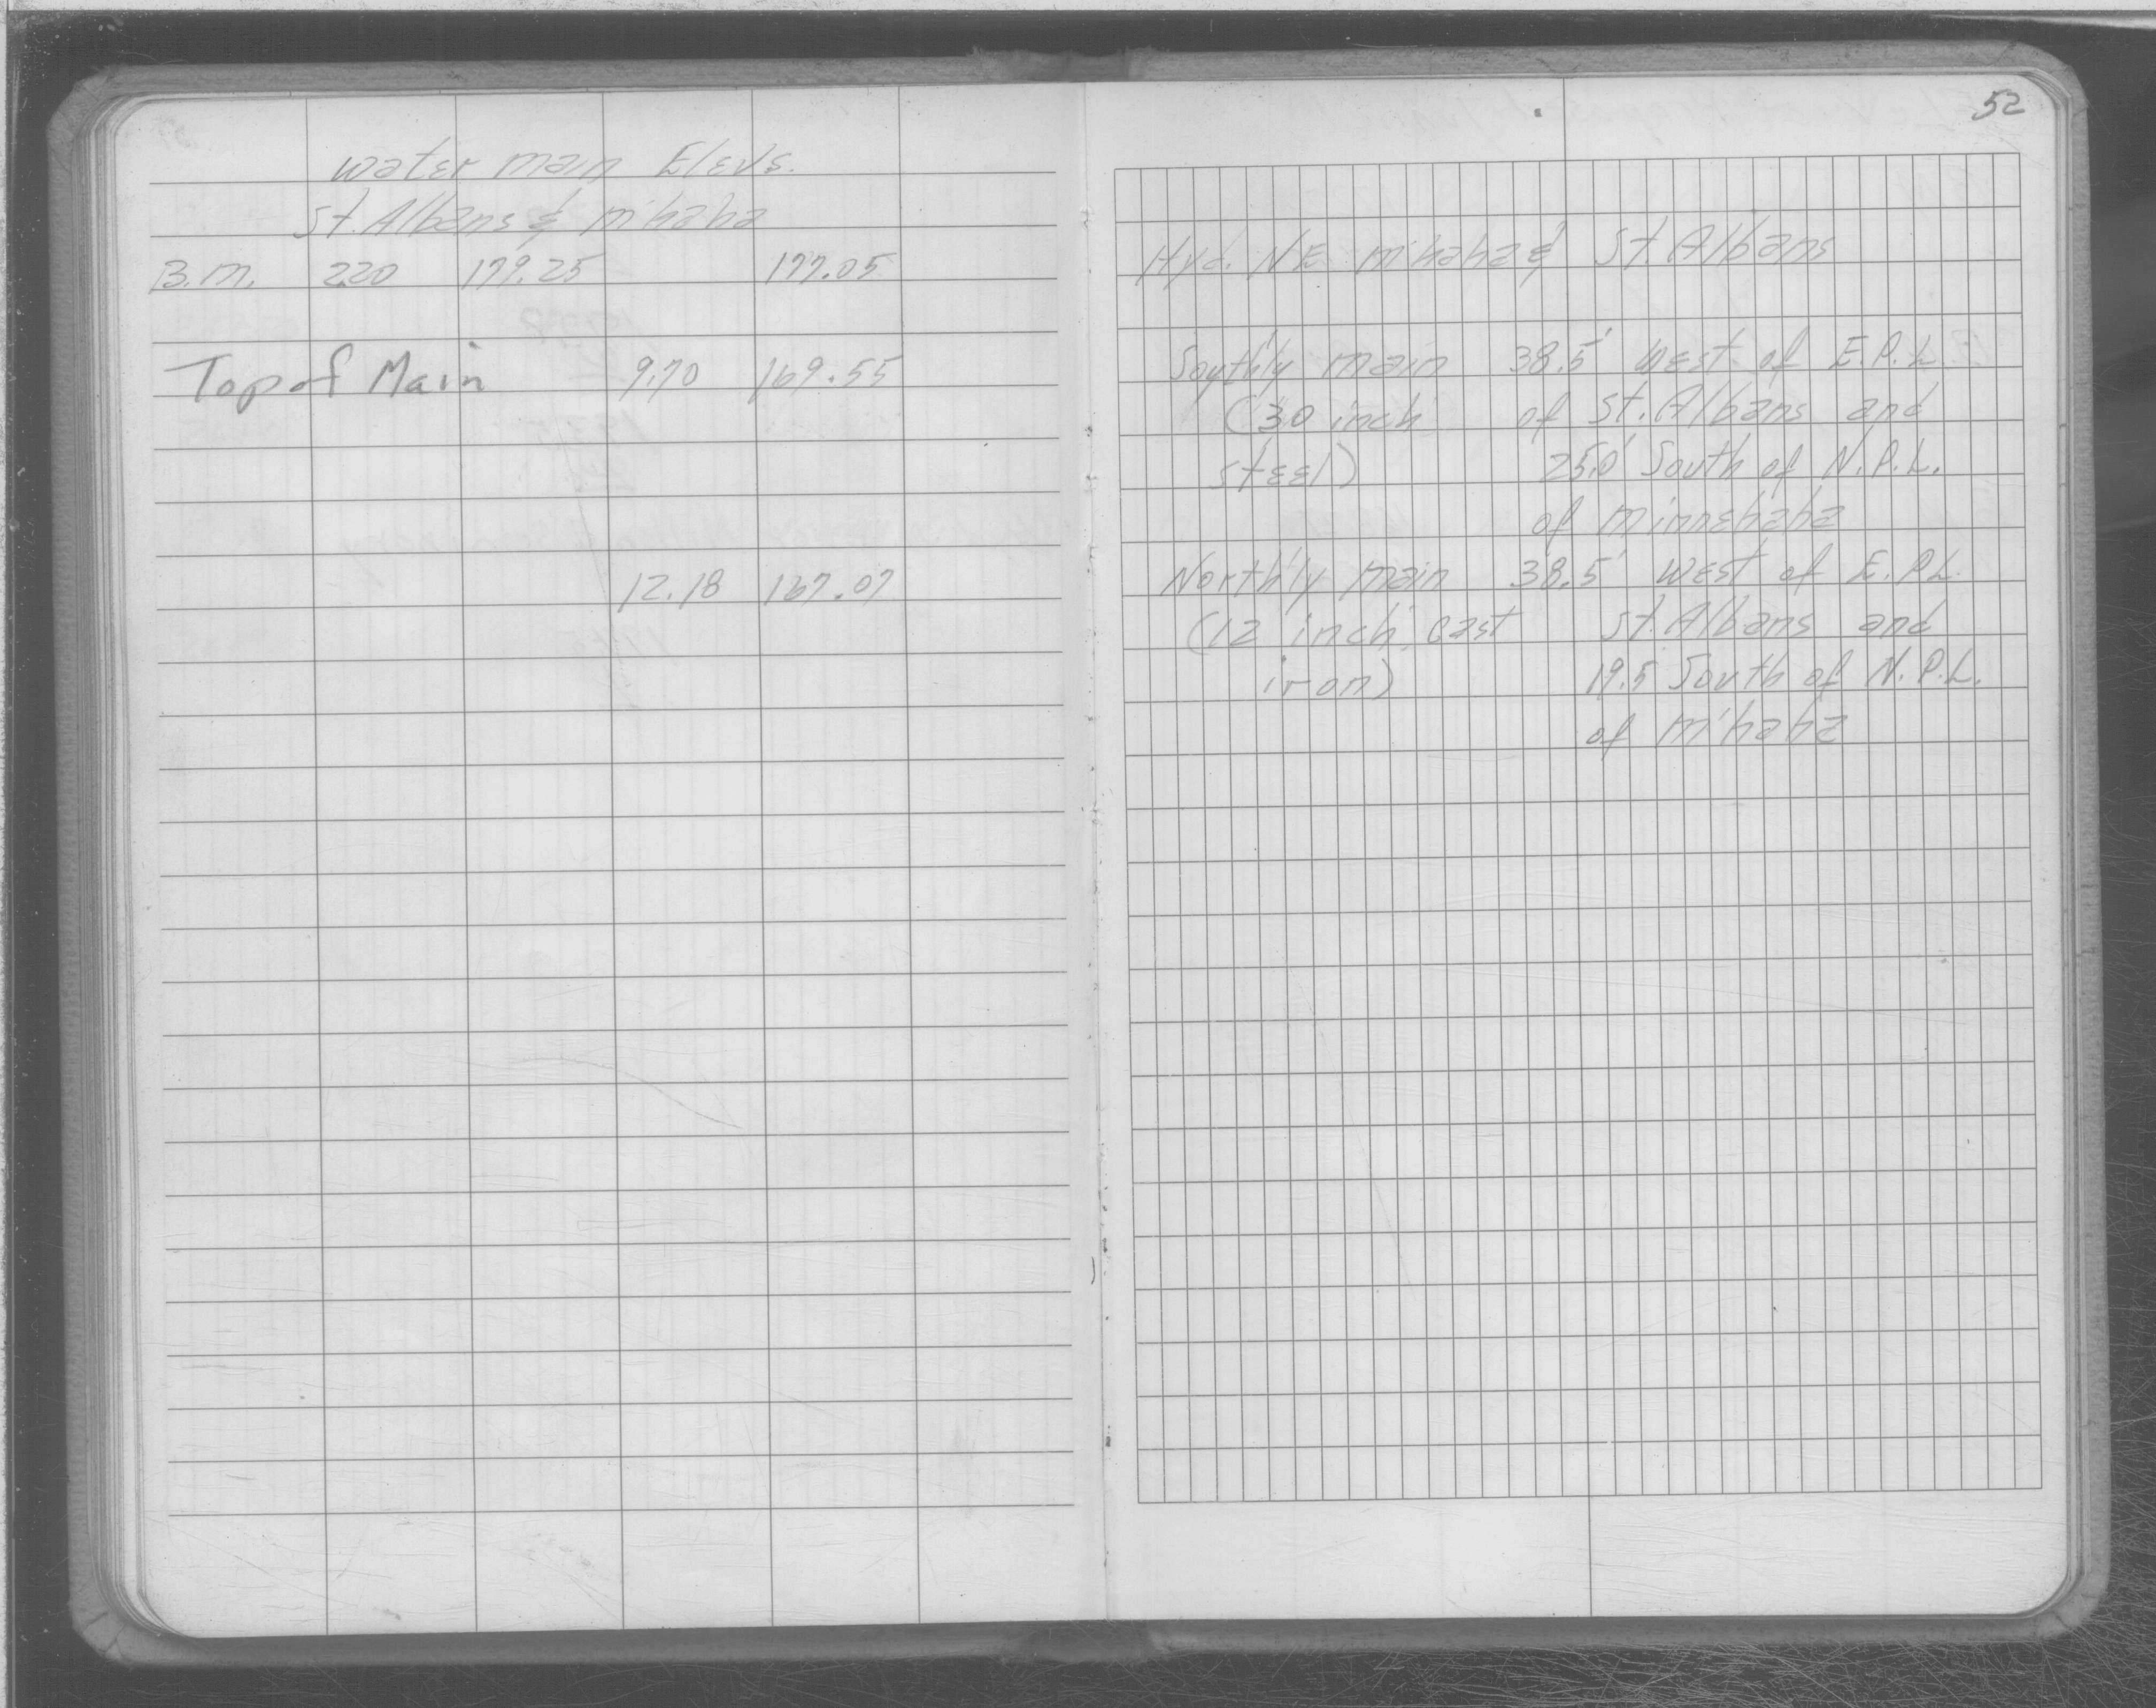 52
Water main Elevs.
St. Albans & m'haha
B.M. 220 179.25 177.05
Top of Main 9.70 169.55
12.18 167.07
Hyd. NE m'haha & St. Albans
South'ly main 38.5' west of E.P.L.
(30 inch of St. Albans and
steel) 25.0' South of N.P.L.
of minnehaha
North'ly main 38.5' west of E.P.L.
(12 inch cast St. Albans and
iron) 19.5 South of N.P.L.
of m'haha